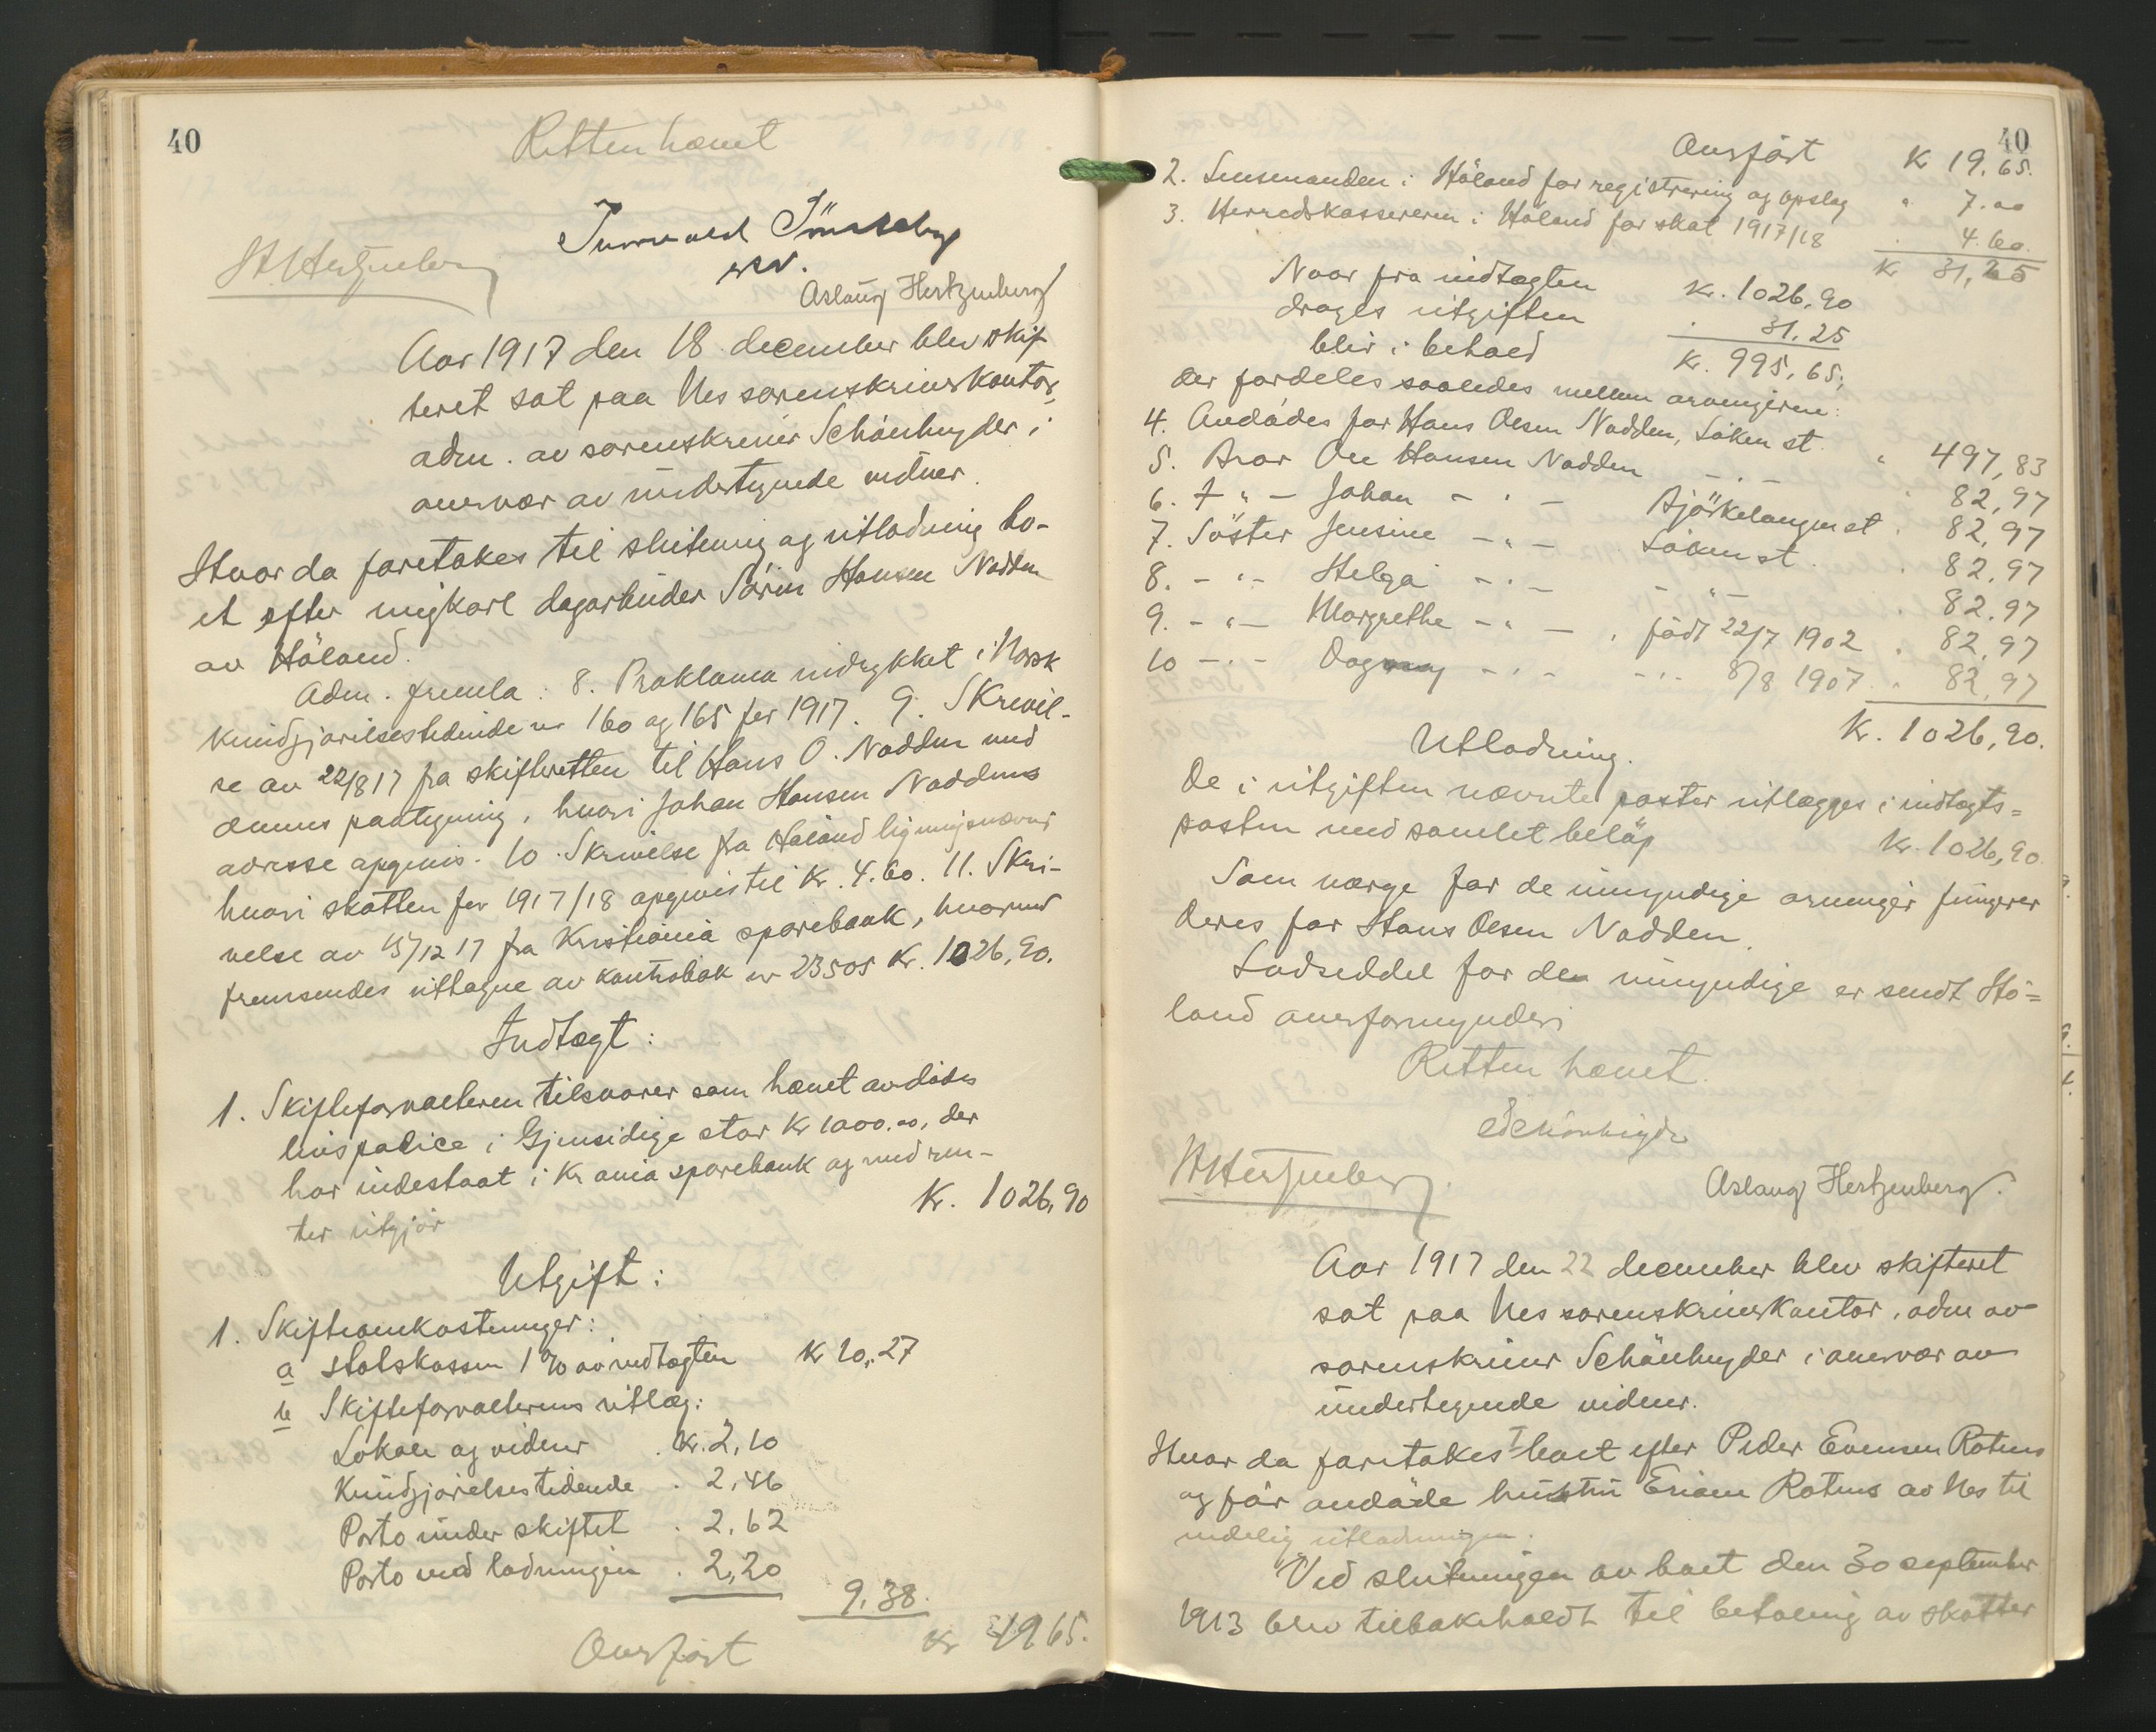 40
Retten hævet
Aslaug Hertzenberg
Aar 1917 den 18 december blev skif
teret sat paa Nes sorenskriverkontor,
adm. av sorenskriver Schönheyder i
overvær av undertegnede vidner.
Hvor da foretakes til slutning og utlodning bo-
et efter ungkarl dagarbeider Sörin Hansen Nadden
av Höland.
Adm. fremla: 8. Proklama indrykket i Norsk
Kundgjörelsestidende nr 160 og 165 for 1917. 9. Skrivel-
se av 22/8 17 fra skifteretten til Hans O. Nadden med
dennes paategning, hvori Johan Hansen Naddens
adresse opgives. 10. Skrivelse fra Höland ligningsnævnd
hvori skatten for 1917/18 opgives til Kr. 4.60. 11. Skri-
velse av 15/12 17 fra Kristiania sparebank, hvorved
fremsendes uttagne av kontrabok nr 23505 Kr. 1026,90.
Indtægt:
1. Skifteforvalteren tilsvarer som hævet avdödes
livspolice i Gjensidige stor Kr 1000.00, der
har indestaat i Kr ania sparebank og med ren-
ter utgjör Kr. 1026,90
Utgift:
1. Skifteomkostninger:
a statskassen 1% av indtægten Kr 10,27
b Skifteforvalterens utlæg:
Lokale og vidner . Kr. 2,10
Kundgjörelsestidende . 2,46
Porto under skiftet . 2,62
Porto ved lodningen . 2,20
9,38.
Overfört Kr 19 65.
40
Overfört Kr 19.65.
2. Lensmanden i Höland for registrering og opslag " 7.00
3. Herredskassereren i Höland for skat 1917/18 . 4.60.
Kr 31,25
Naar fra indtægten Kr. 1026,90
drages utgiften . 31,25
blir i behold Kr. 995,65,
der fordeles saaledes mellem arvingerne:
4. Avdödes far Hans Olsen Nadden, Löken st. " 497,83
5. Bror Ole Hansen Nadden - . - . 82,97
6. - " - Johan - " - Bjørkelangen st . 82,97
7. Söster Jensine - " - Löken st. . 82,97
8. - " - Helga - " - - " - . 82,97
9. - " - Margrethe - " - , född 22/7 1902 . 82,97
10 - " - Dagmar - " - - " - 8/8 1907 . 82,97
Kr. 1026,90.
Utlodning.
De i utgiften nævnte poster utlægges i indtægts=
posten med samlet belöp Kr. 1026,90
Som værge for de umyndige arvinger fungerer
deres far Hans Olsen Nadden.
Lodseddel for de umyndige er sendt Hö=
land overformynderi
Retten hævet.
Schönheyder
Aslaug Hertzenberg.
Aar 1917 den 22 december blev skifteret
sat paa Nes sorenskriverkontor, adm av
sorenskriver Schönheyder i overvær av
undertegnede vidner.
Hvor da foretakes I boet efter Peder Evensen Rotnes
og för avdöde hustru Eriam Rotnes av Nes til
endelig utlodningen.
Ved slutningen av boet den 30 september
1913 blev tilbakeholdt til betaling av skatter